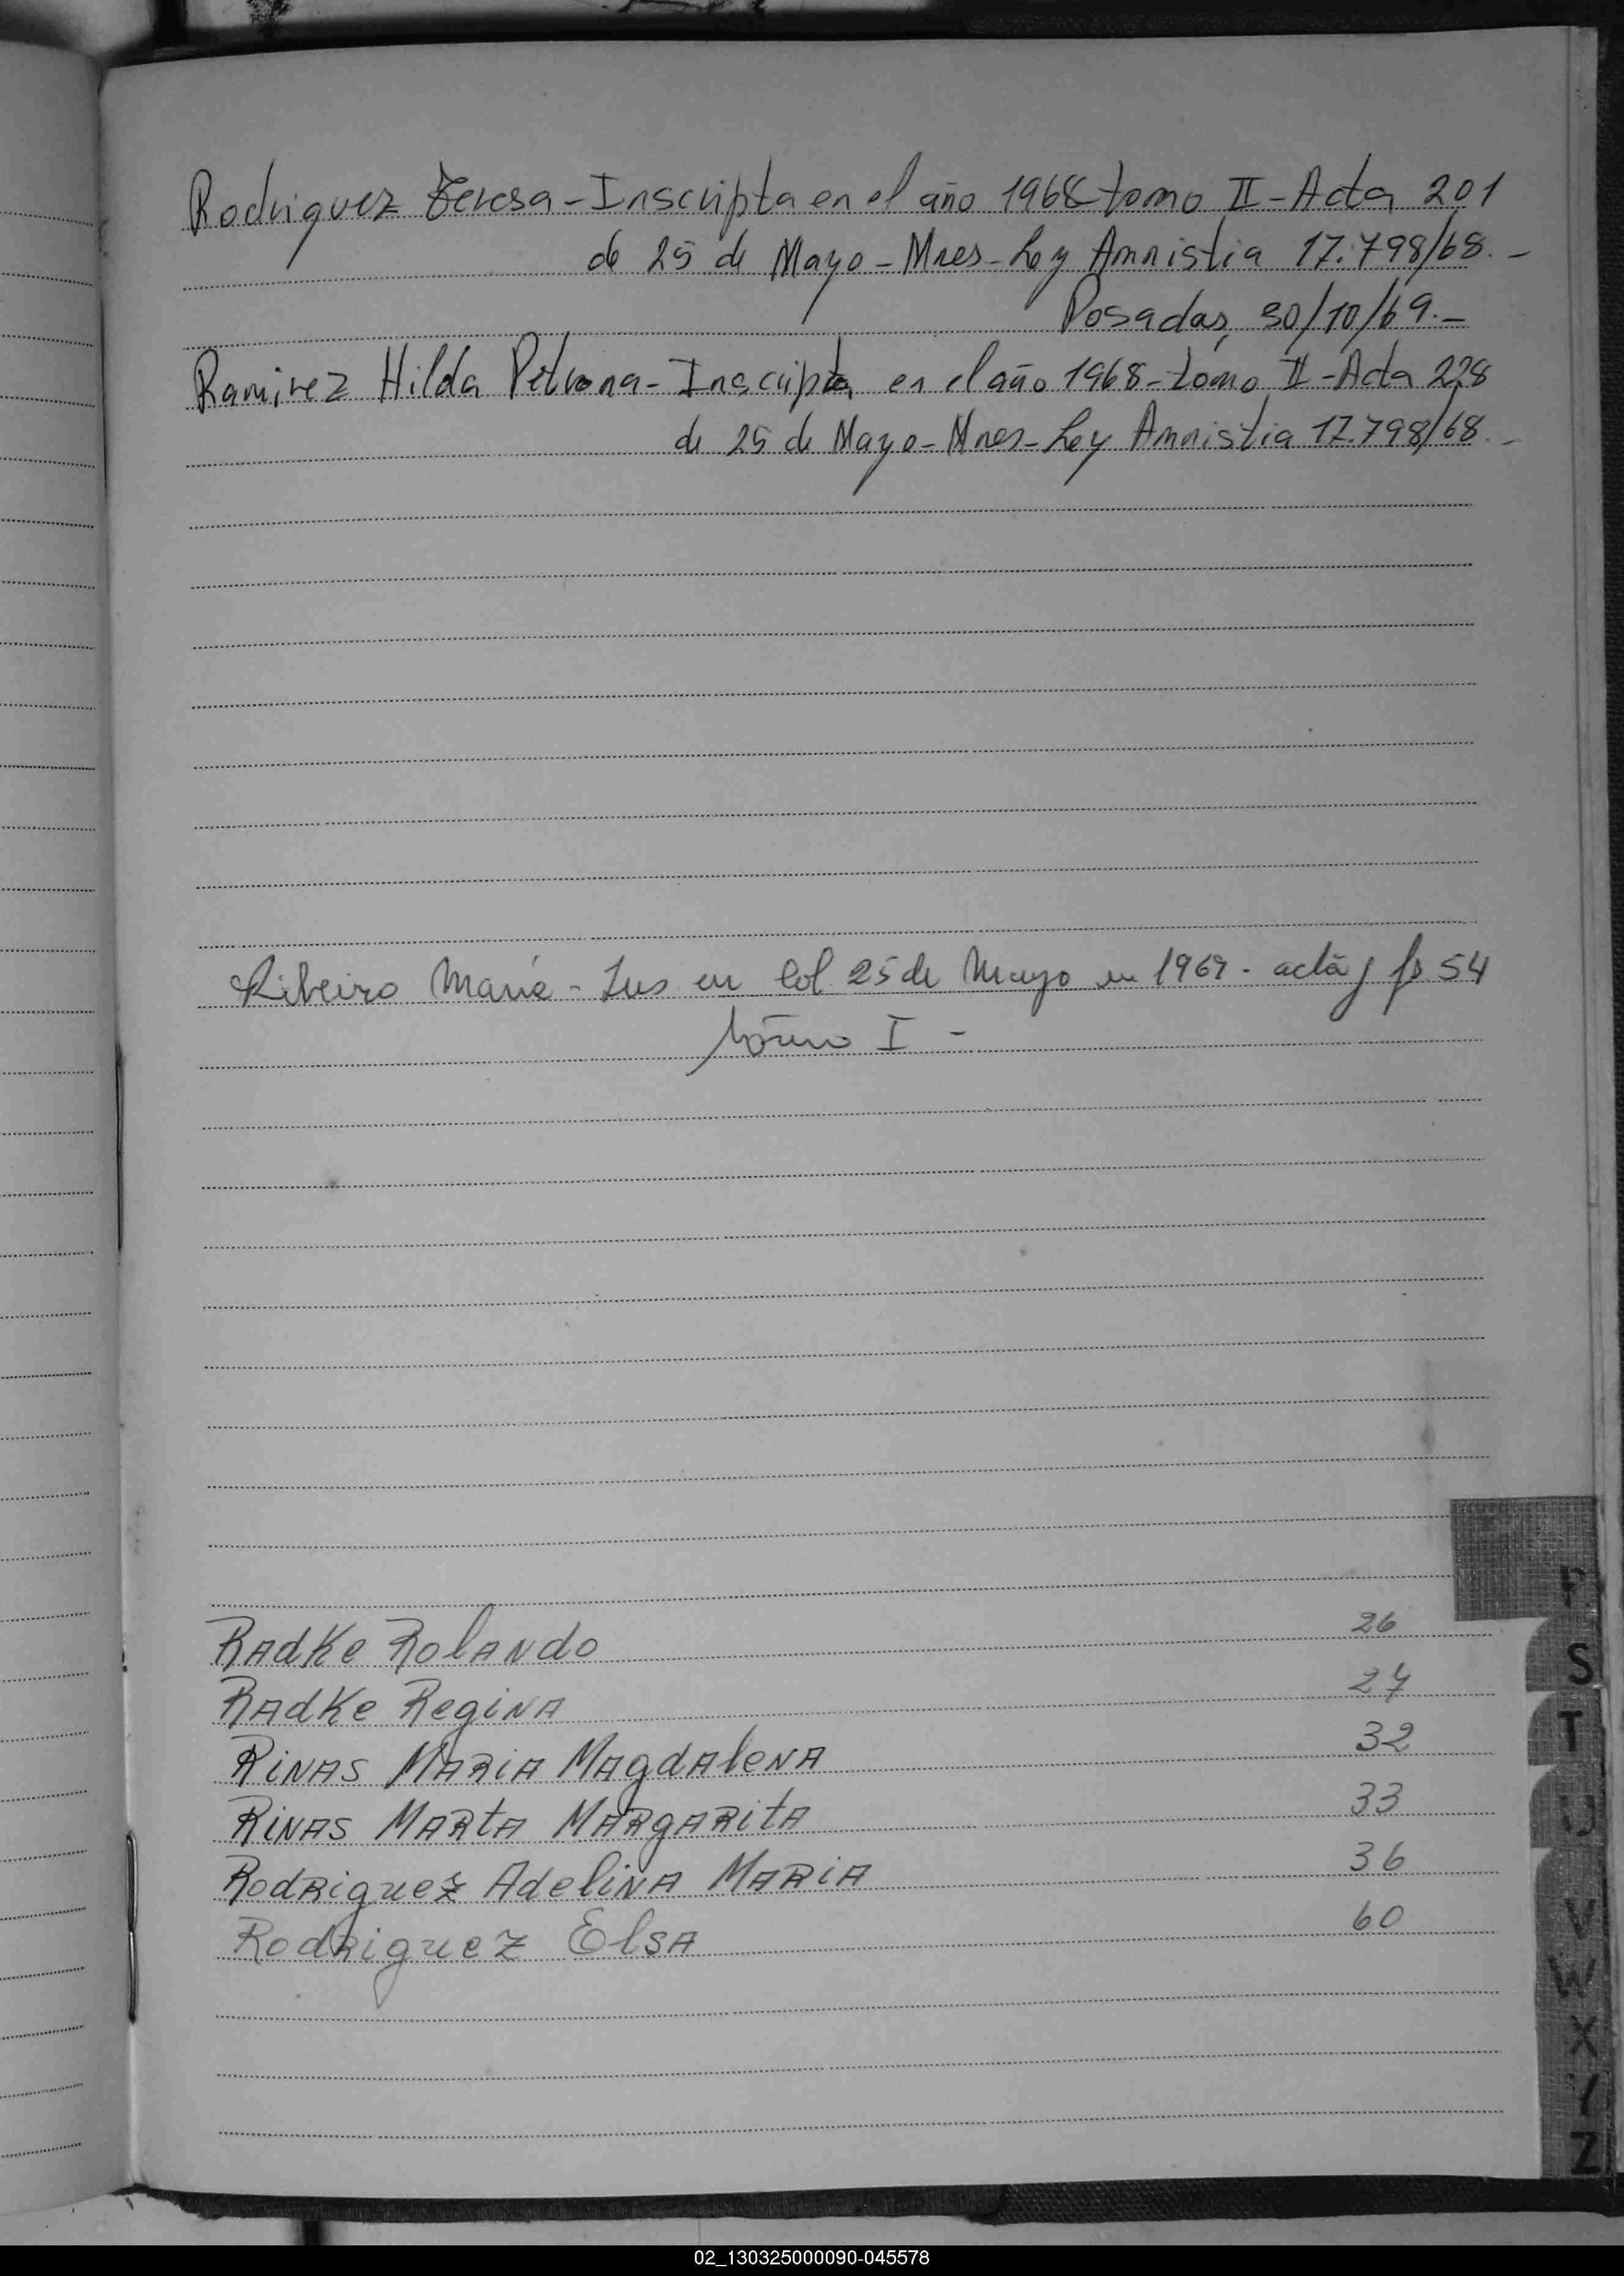 Rodriguez Teresa - Inscripta en el año 1968 tomo II - Acta 201
de 25 de Mayo - Mnes - Ley Amnistia 17.798/68. -
Posadas, 30/10/69. -
Ramirez Hilda Petrona - Inscripta en el año 1968 - tomo II - Acta 228
de 25 de Mayo - Mnes - Ley Amnistia 17.798/68. -
Ribeiro Maria - Ins en Col 25 de Mayo en 1969 - acta y fs 54
tomo I -
RAdKe RolANdo 26
RAdKe RegiNA 27
RiNAS MARiA MAgdAleNA 32
RiNAS MARtA MARgARitA 33
RodRiguez AdeliNA MARiA 36
RodRiguez ElSA 60
R
S
T
U
V
W
X
Y
Z
02_130325000090-045578